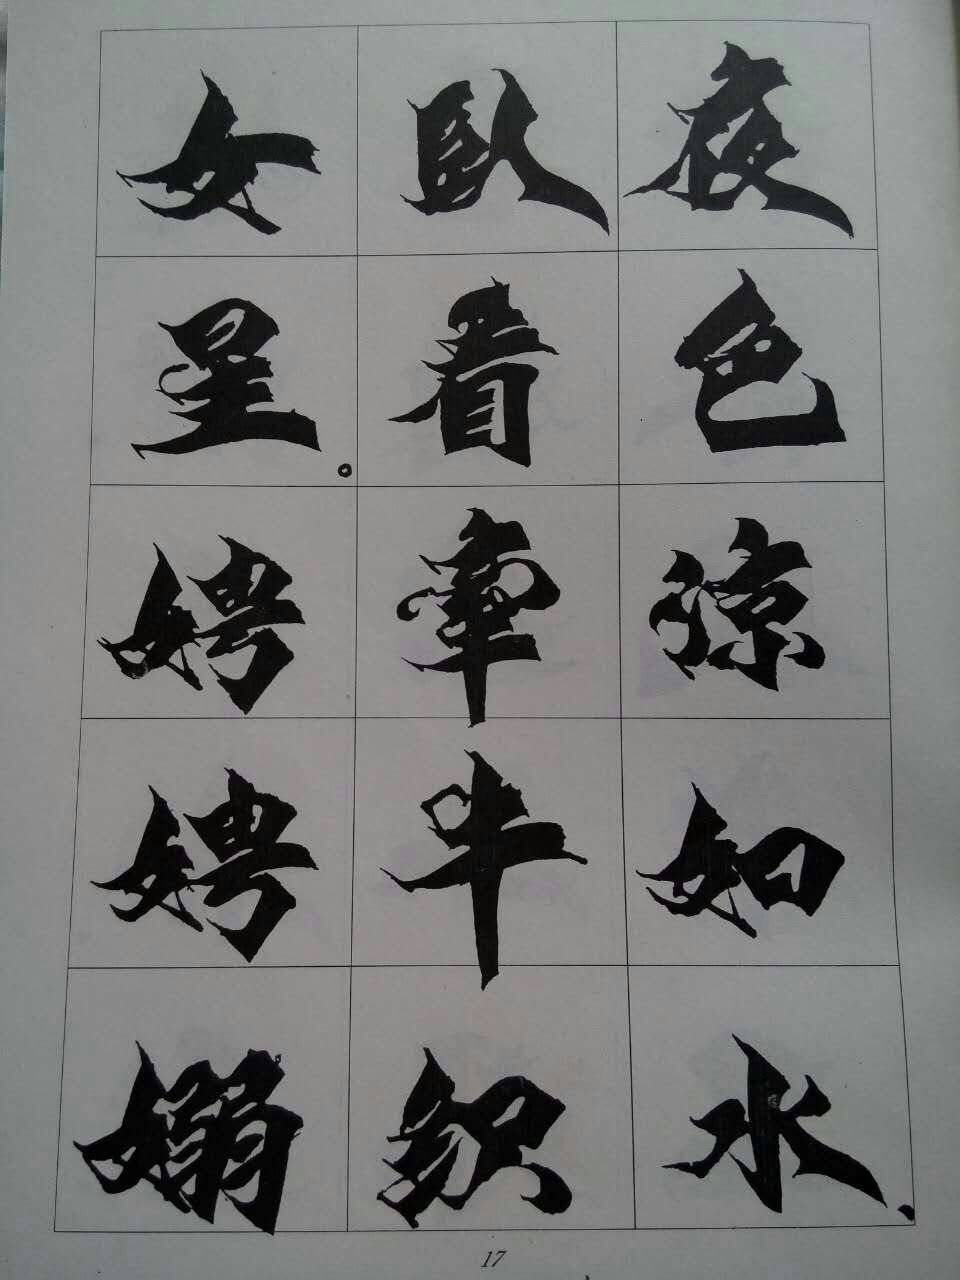 夜色涼如水、
臥看牽牛织
女星。娉娉嫋
17